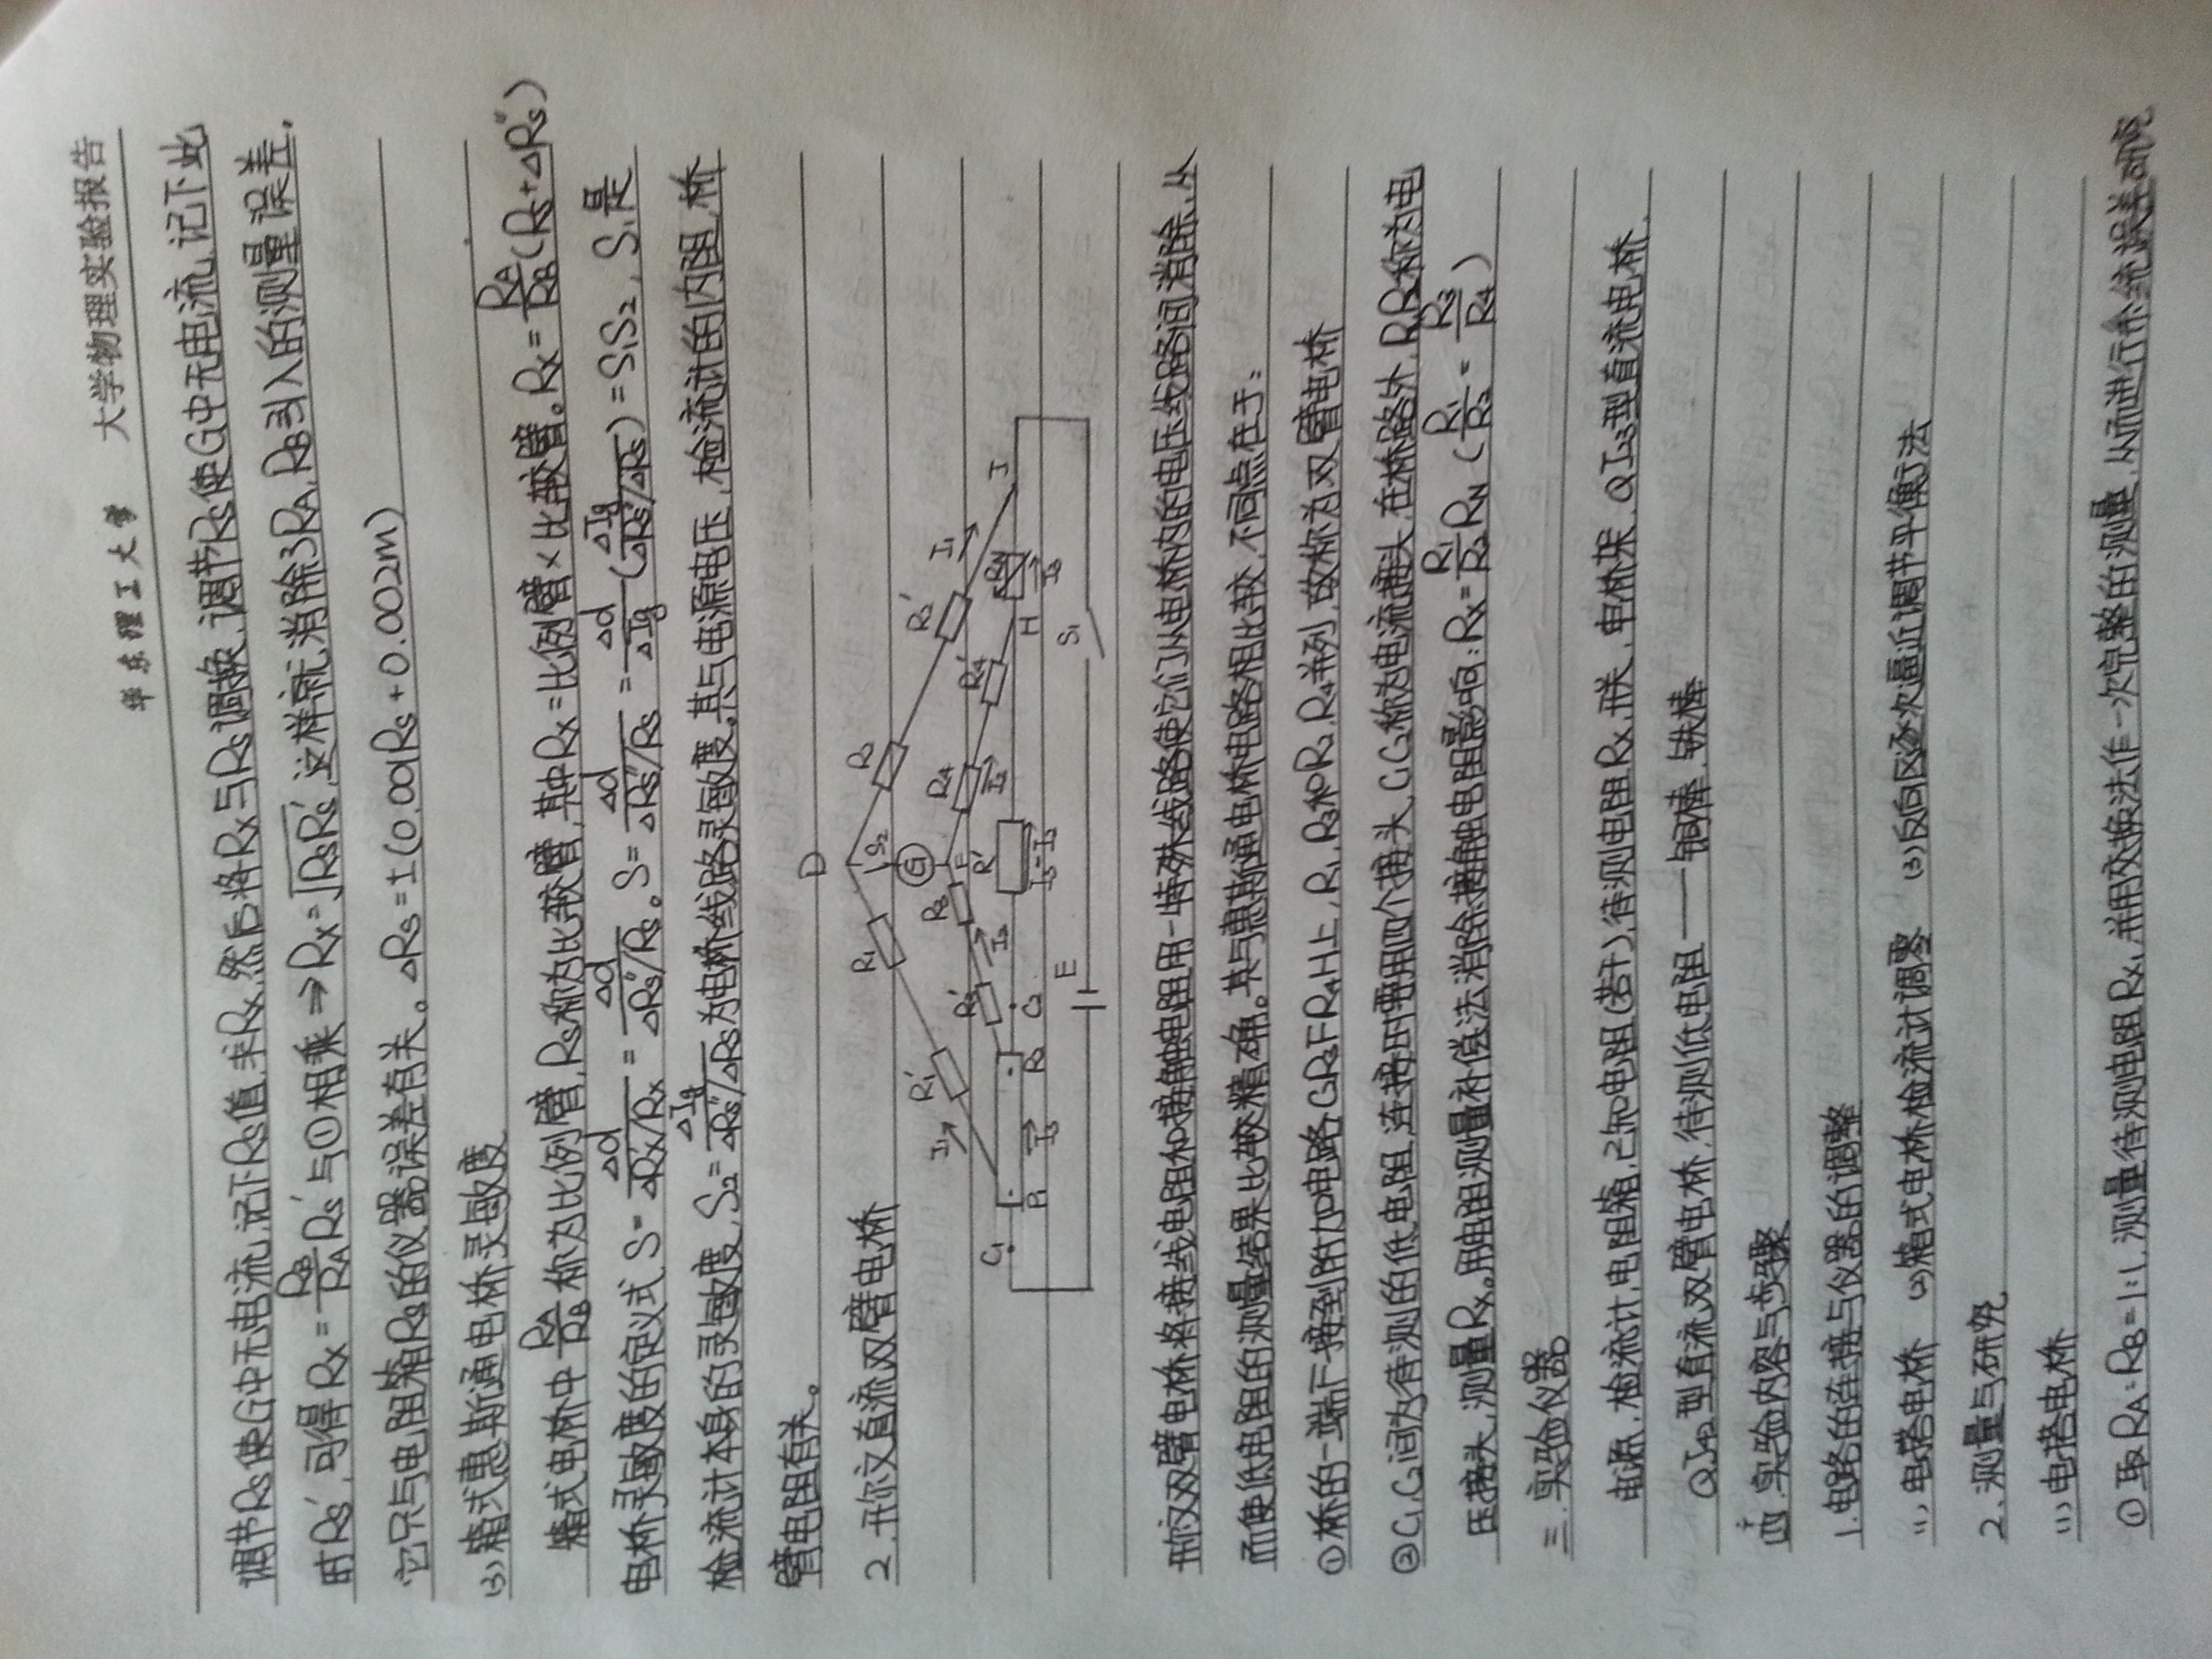 华东理工大学 大学物理实验报告
调节Rs使G中无电流,记下Rs值,求Rx,然后将Rx与Rs调换,调节Rs使G中无电流,记下此
时Rs′,可得Rx=RB/RA Rs′与①相乘⇒Rx=√RsRs′,这样就消除了RA,RB引入的测量误差.
它只与电阻箱Rs的仪器误差有关。△Rs=±(0.001Rs+0.002m)
(3)箱式惠斯通电桥灵敏度
箱式电桥中RA/RB称为比例臂,Rs称为比较臂,其中Rx=比例臂×比较臂。Rx=RA/RB(Rs+△Rs″)
电桥灵敏度的定义式S=△d/(△Rx/Rx)=△d/(△Rs″/Rs)。S=△d/(△Rs″/Rs)=△d/△Ig(△Ig/(△Rs″/△Rs))=S1S2,S1是
检流计本身的灵敏度,S2=△Ig/(△Rs″/△Rs)为电桥线路灵敏度。其与电源电压,检流计的内阻,桥
臂电阻有关。
2.开尔文直流双臂电桥
D
R1 S2 R2
R1′ G R2′
I1 R3 F R4 I1
R3′ I2 R′ I2 R4′ RN J
C1 P1 I3 P2 C2 I3-I2 H I3
E S1
开尔文双臂电桥将接线电阻和接触电阻用一特殊线路使它们从电桥内的电压线路间消除,从
而使低电阻的测量结果比较精确。其与惠斯通电桥电路相比较,不同点在于:
①桥的一端F接到附加电路C2R3FR4H上,R1,R3和R2,R4并列,故称为双臂电桥
②C1,C2间为待测的低电阻,连接时要用四个接头,C1C2称为电流接头,在桥路外,P1P2称为电
压接头,测量Rx。用电阻测量补偿法消除接触电阻影响:Rx=R1/R2 RN (R1/R2=R3/R4)
三.实验仪器
电源,检流计,电阻箱,已知电阻(若干),待测电阻Rx,开关,电桥架,QJ23型直流电桥,
QJ42型直流双臂电桥,待测低电阻——铜棒,铁棒
四.实验内容与步骤
1.电路的连接与仪器的调整
(1)电搭电桥 (2)箱式电桥检流计调零 (3)反向区逐次逼近调节平衡方法
2.测量与研究
(1)电搭电桥
①取RA:RB=1:1,测量待测电阻Rx1,并用交换法作一次完整的测量,从而进行系统误差研究